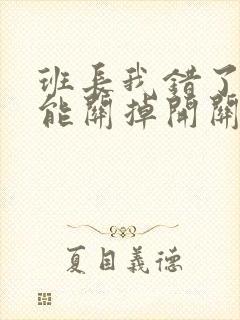 班長我錯了
能關掉開關
夏目義德